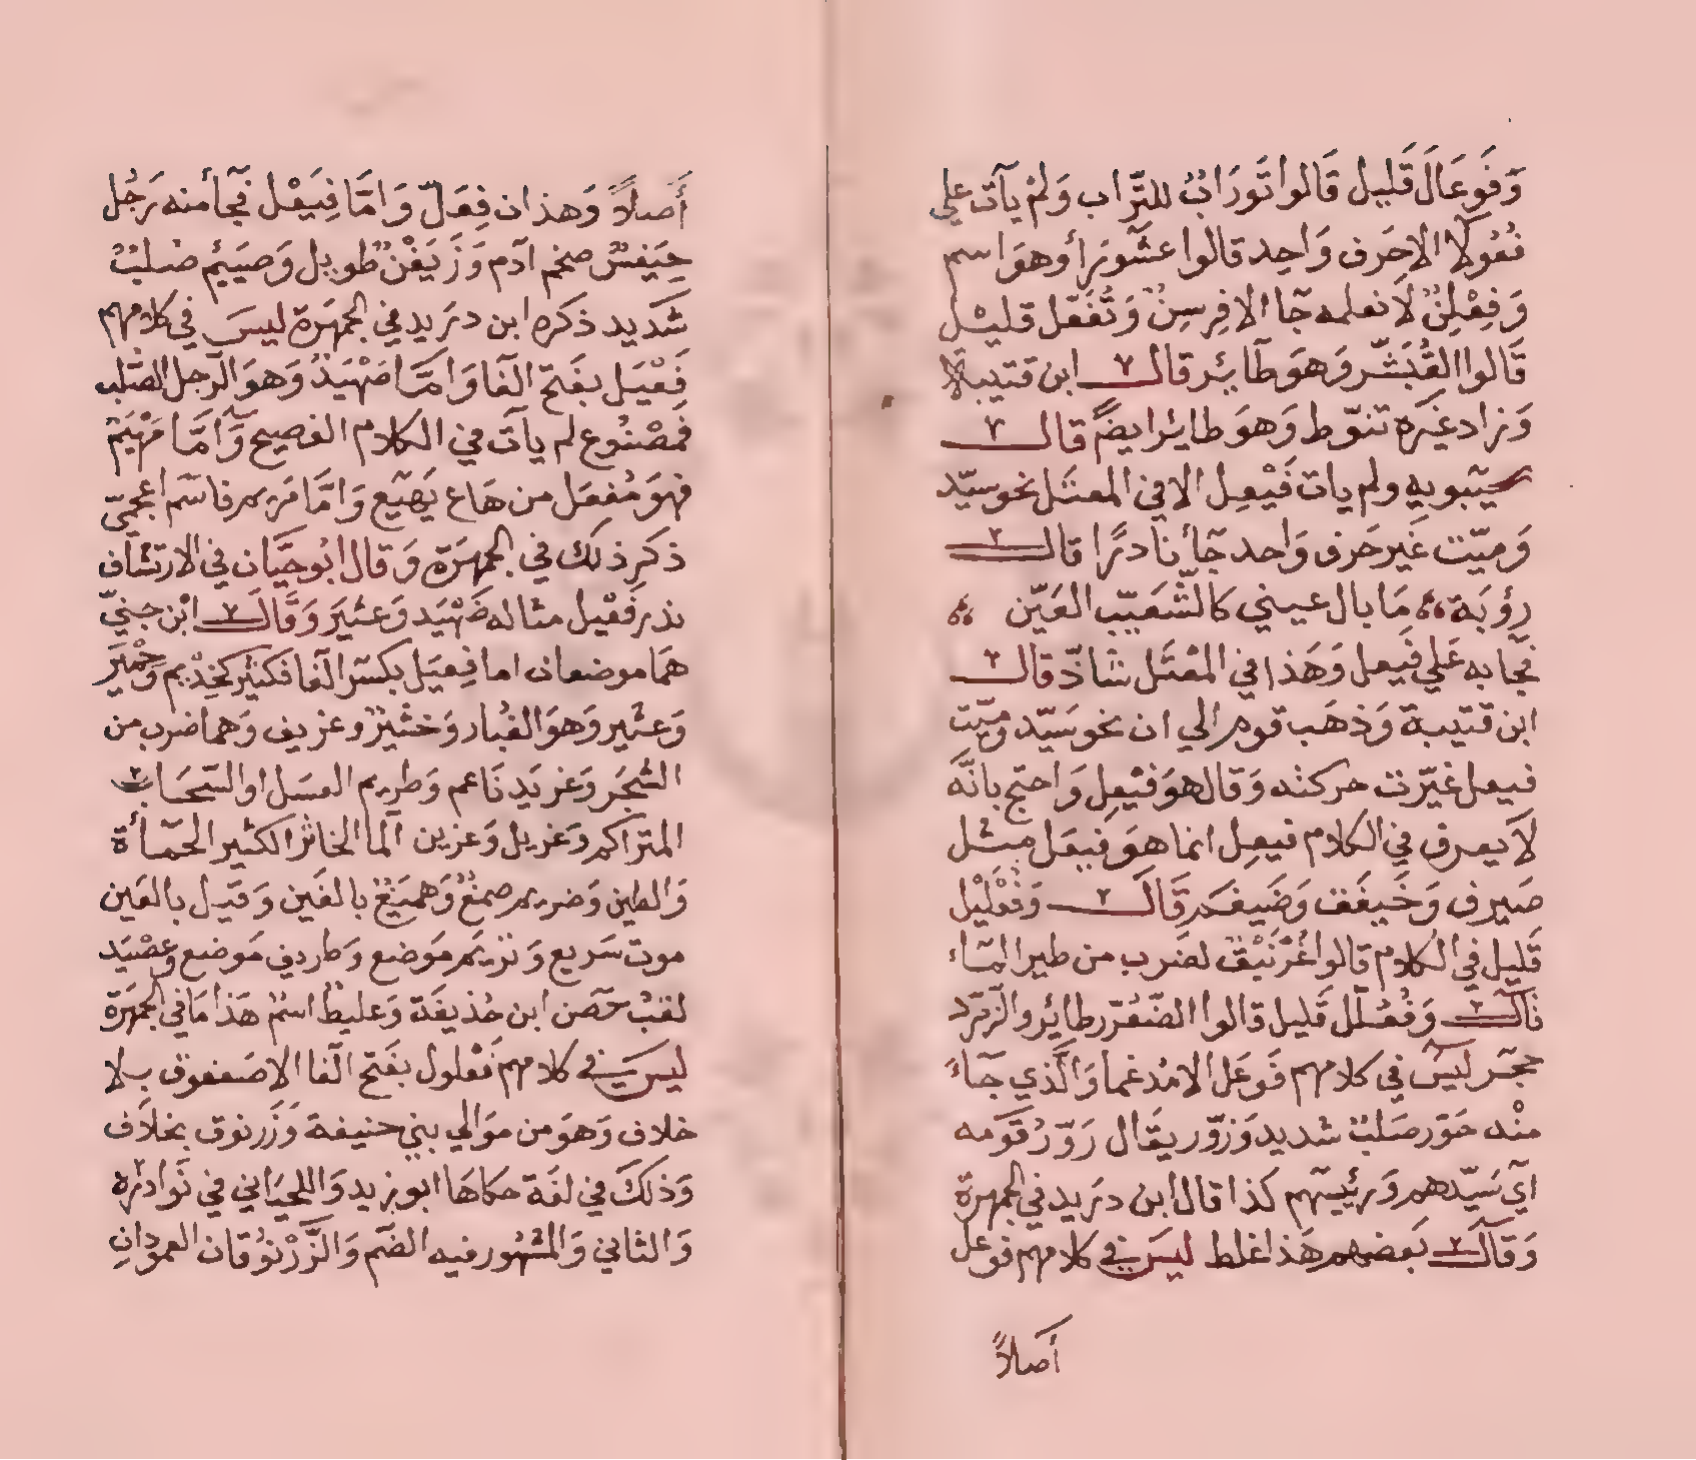 وَفَوعَالَ قَليل قَالوا تَورَابٌ للتّراب وَلمْ يآت علي
فُعُولَا الاحَرف وَاحِد قالوا عَشُورَا وهوَ اسم
وَفِعْلِنٌ لَا نعلمه جَا الا فِرسِنٌ وَتُفَعّل قليل
قَالوا القُبَشّر وَهوَ طآيئر قالــ ابن قتيبة
وَزاد غَيرَه تنوّط وَهوَ طايئر ايضًا قالــ
سيبويه ولم يات فَيْعِل الا في المعتَل نحو سيّد
وَميّت غَير حَرف وَاحد جَأ نادرًا قالــ
رؤبَة مَا بال عيني كالشّعَيّب العَيّن
فجَا به عَلي فَيعل وَهَذا في المعْتَل شاذّ قالــ
ابن قتيبة وَذهَب قوم الي ان نحو سَيّد وميّت
فيعل غيّرت حركته وَقال هوَ فيْعِل وَاحتج بانَّه
لَا يعرف في الكلام فيعِل انما هوَ فيعَل مثل
صَيرف وَخَيفَق وَضَيغَم قَالَــ وَفُعْلَيْل
قَليل في الكلام قالوا غُرْنَيْق لضرب من طير المآء
قالــ وَفُعُلّل قَليل قالوا الصّعُرّر طائر والزّمرّد
حجَر ليسَ في كلامهم فَوعَل الا مُدغما وَالَّذي جَآءَ
منْه حَوّر صَلبٌ شديد وَزوّر يقَال رَوّرُ قَومه
آي سَيّدهم وَرئيسهم كذا قال ابن دريد في الجمهرة
وَقالــ بَعضهم هَذا غلط ليسَ في كلامهم فوعل
أصلاً
أَصلاً وَهذان فِعَلّ وَامّا فِيَعْل فجَأ منه رَجُل
حِيَفسٌ ضخم آدم وَزَيَفْنٌ طويل وَصيَيٌم صلبٌ
شَديد ذكَره ابن دريد في الجمهَرة ليسَ في كلامهم
فَعْيَل بفَتح الفَا وَامّا ضَهْيَدٌ وَهوَ الرّجل الصّلب
فمصْنُوع لم يآت في الكلام الفصيح وَامّا مَهْيَمٌ
فهوَ مُفعَل من هَاع يَهيَع وَامَّا مَريم فاسم اعجميّ
ذكر ذلك في الجمهَرة وَقال ابُوحيَّان في الارتشاف
ندر فَعْيل مثاله ضَهْيَد وَعثيَر وَقَالَــ ابْن جنيّ
همَا موضعان اما فِعيَل بكسَر الفا فكثير كحِذْيم وَحمْيَر
وَعثيَر وَهوَ الغُبار وَخشيَرٌ وغريف وَهما ضرب من
الشجَر وَغريَد نَاعم وَطريم العسَل او السّحَاب
المتراكم وَغريل وَغرين المآ الخاثر الكثير الحَمأة
وَالطين وَضريم صمغٌ وَهِميَغٌ بالغَين وَقيل بالعَين
موت سَريع وَتريَم مَوضع وَطريف مَوضع وَعِصْيَد
لقبُ حصن ابن حُذيفَة وَعليطٌ اسمٌ هَذا مَا في الجمهَرة
ليسَ في كلامهم فَعْلول بفَتح الفَا الا صَعفوق بلا
خلاف وَهوَ من مَوَالي بني حنيفة وَزَرنوق بخلَاف
وَذلكَ في لغَة حكاهَا ابو زيد وَاللحيَاني في نَوادره
وَالثاني وَالمشْهُور فيه الضّم وَالزَّرْنُوقان العمودانِ